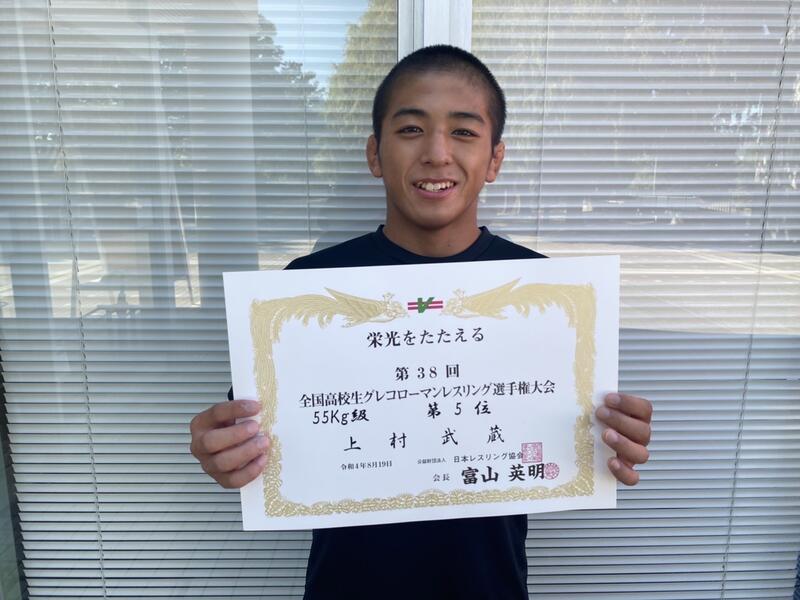 栄光をたたえる
第38回
全国高校生グレコローマンレスリング選手権大会
55Kg級 第5位
上村武蔵
令和4年8月19日
公益財団法人 日本レスリング協会
会長 富山英明